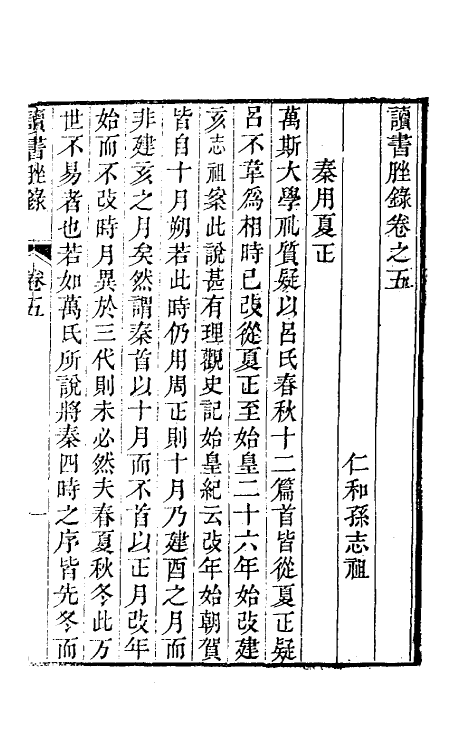 讀書脞錄卷之五
仁和孫志祖
秦用夏正
萬斯大學礼質疑以呂氏春秋十二篇首皆從夏正疑
呂不韋爲相時已改從夏正至始皇二十六年始改建
亥志祖案此說甚有理觀史記始皇紀云改年始朝賀
皆自十月朔若此時仍用周正則十月乃建酉之月而
非建亥之月矣然謂秦首以十月而不首以正月改年
始而不改時月異於三代則未必然夫春夏秋冬此万
世不易者也若如萬氏所說將秦四時之序皆先冬而
讀書脞錄
卷五
一